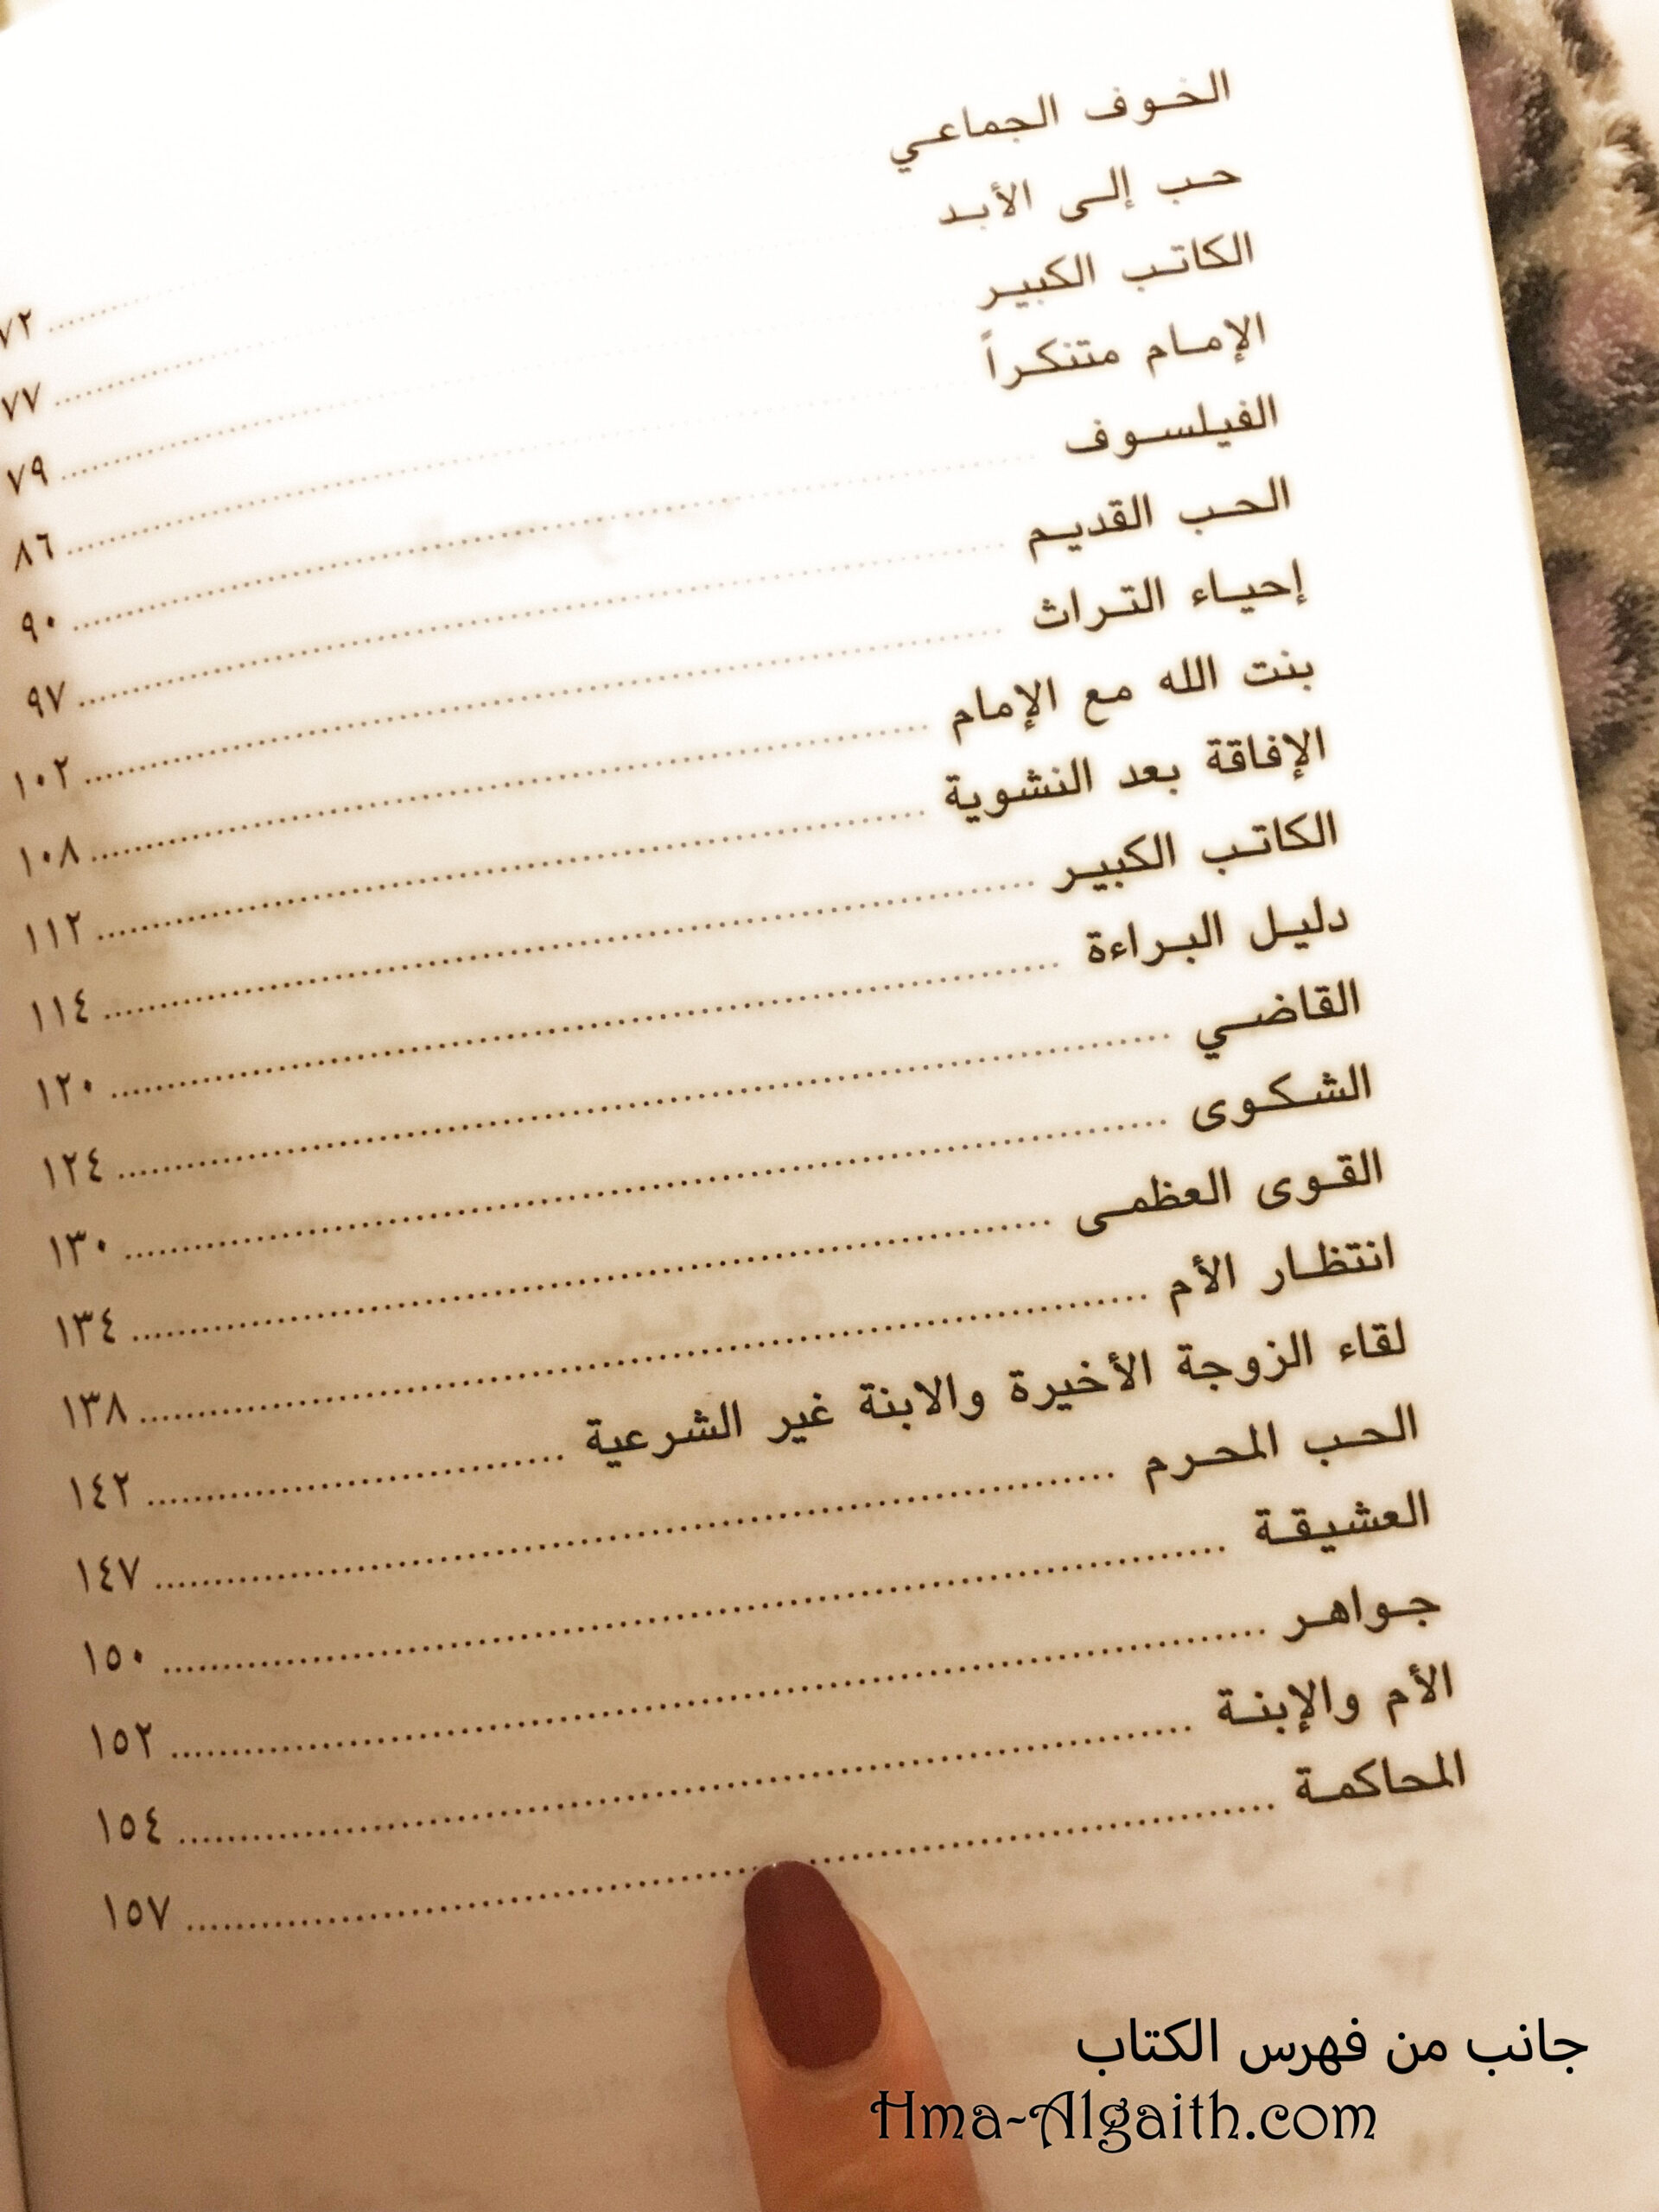 الخوف الجماعي ........ ٧٢
حب إلى الأبد ........ ٧٧
الكاتب الكبير ........ ٧٩
الإمام متنكراً ........ ٨٦
الفيلسوف ........ ٩٠
الحب القديم ........ ٩٧
إحياء التراث ........ ١٠٢
بنت الله مع الإمام ........ ١٠٨
الإفاقة بعد النشوية ........ ١١٢
الكاتب الكبير ........ ١١٤
دليل البراءة ........ ١٢٠
القاضي ........ ١٢٤
الشكوى ........ ١٣٠
القوى العظمى ........ ١٣٤
انتظار الأم ........ ١٣٨
لقاء الزوجة الأخيرة والابنة غير الشرعية ........ ١٤٢
الحب المحرم ........ ١٤٧
العشيقة ........ ١٥٠
جواهر ........ ١٥٢
الأم والإبنة ........ ١٥٤
المحاكمة ........ ١٥٧
جانب من فهرس الكتاب
Hma-Algaith.com